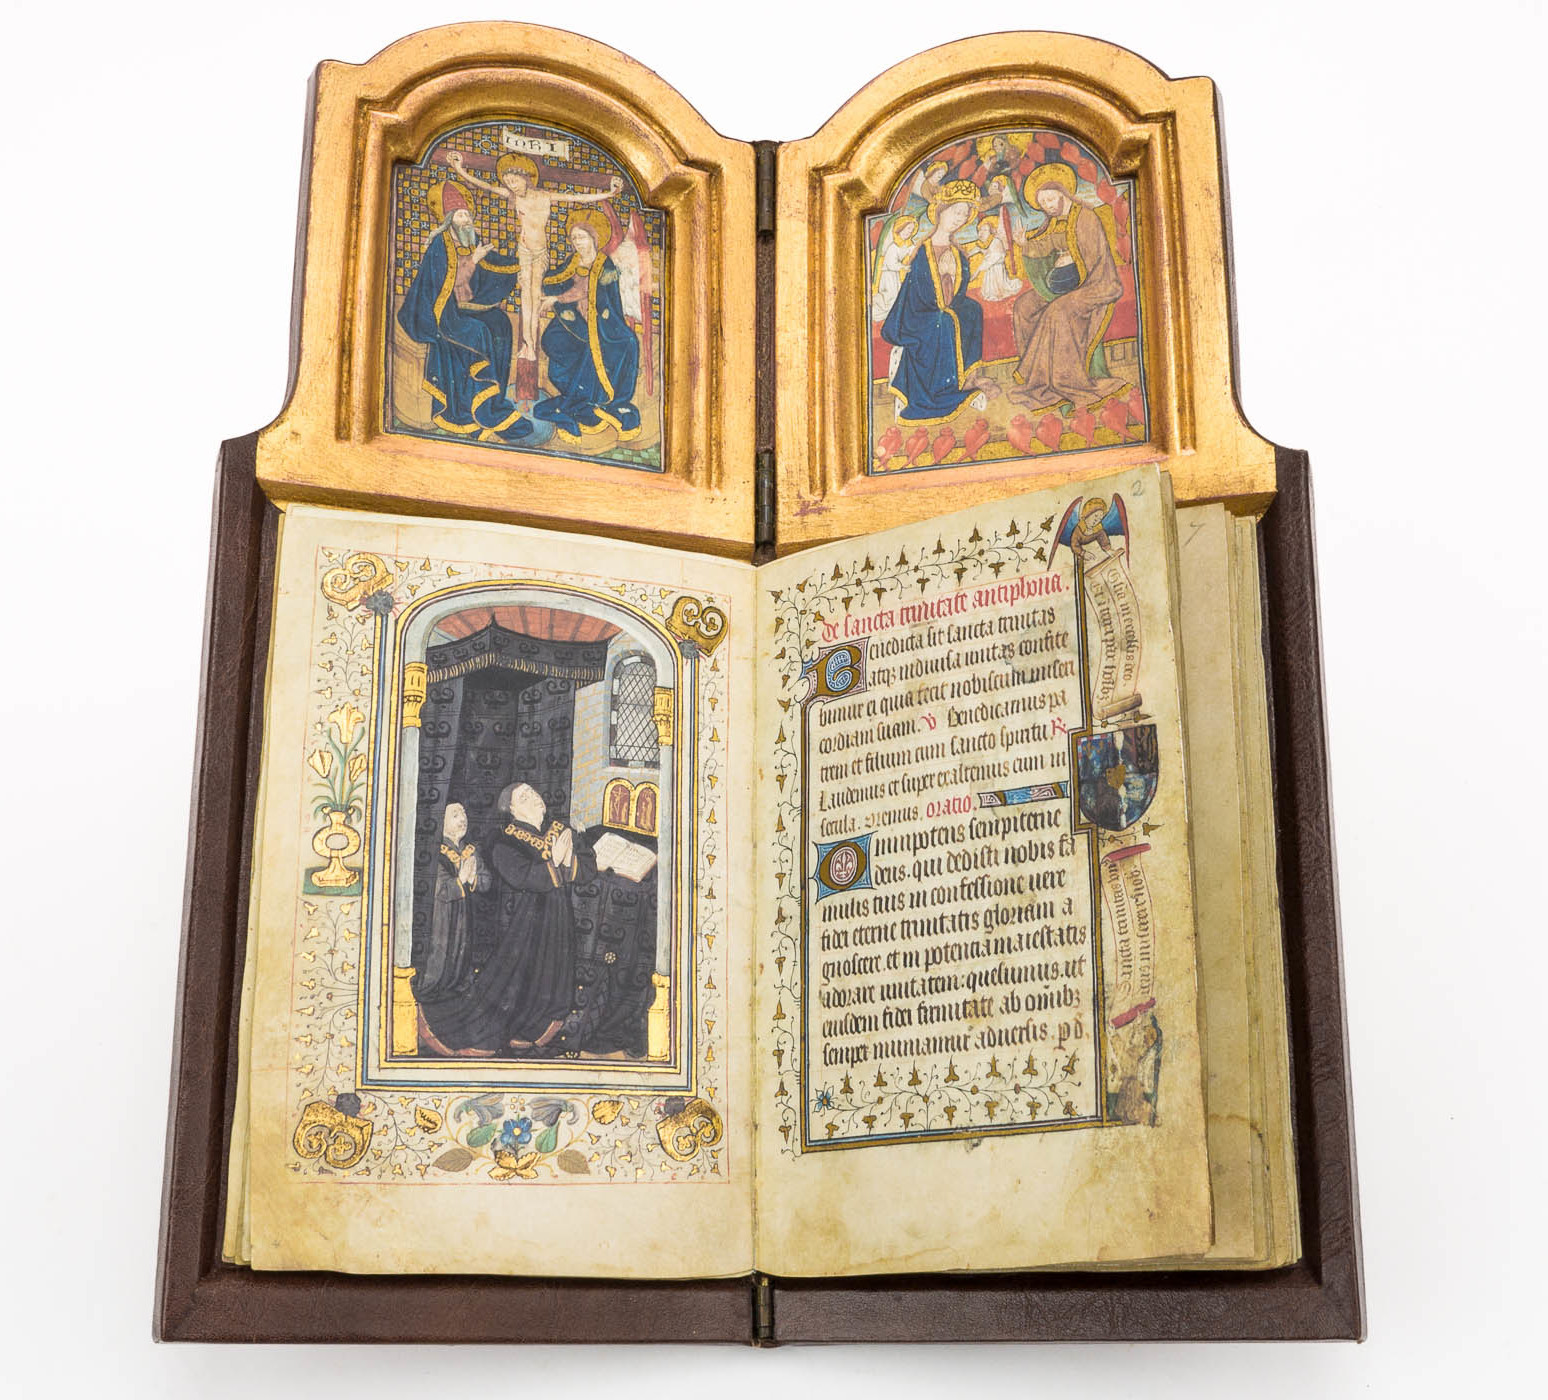 INRI
2
7
de sancta trinitate antiphona.
Benedicta sit sancta trinitas
atq; indiuisa unitas confite
bimur ei quia fecit nobiscum miseri
cordiam suam. V Benedicamus pa
trem et filium cum sancto spiritu R
Laudemus et super exaltemus eum in
secula. Oremus. oratio.
Omnipotens sempiterne
deus. qui dedisti nobis fa
mulis tuis in confessione uere
fidei eterne trinitatis gloriam a
gnoscere. et in potentia maiestatis
adorare unitatem: quesumus. ut
eiusdem fidei firmitate ab omib;
semper muniamur aduersis. p d.